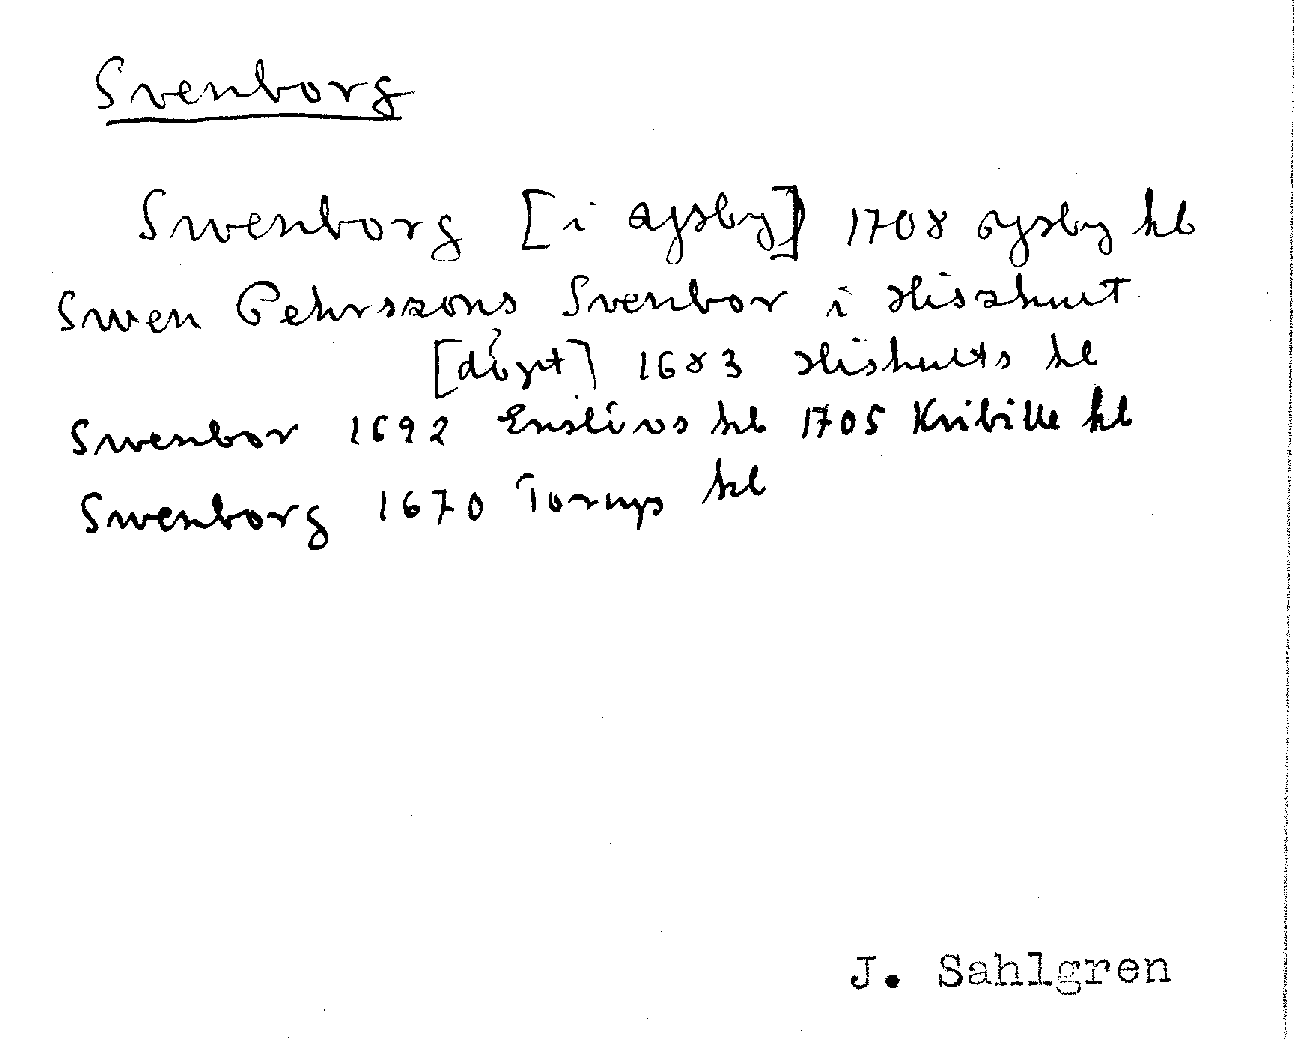 Svenborg
Swenborg [i Aysby] 1708 Øysby kb
Swen Pehrszons Svenbor i Hiszhuit
[döpt] 1683 Hishults kb
Swenbor 1692 Enslövs kb 1705 Kvibille kb
Swenborg 1670 Torup kb
J. Sahlgren